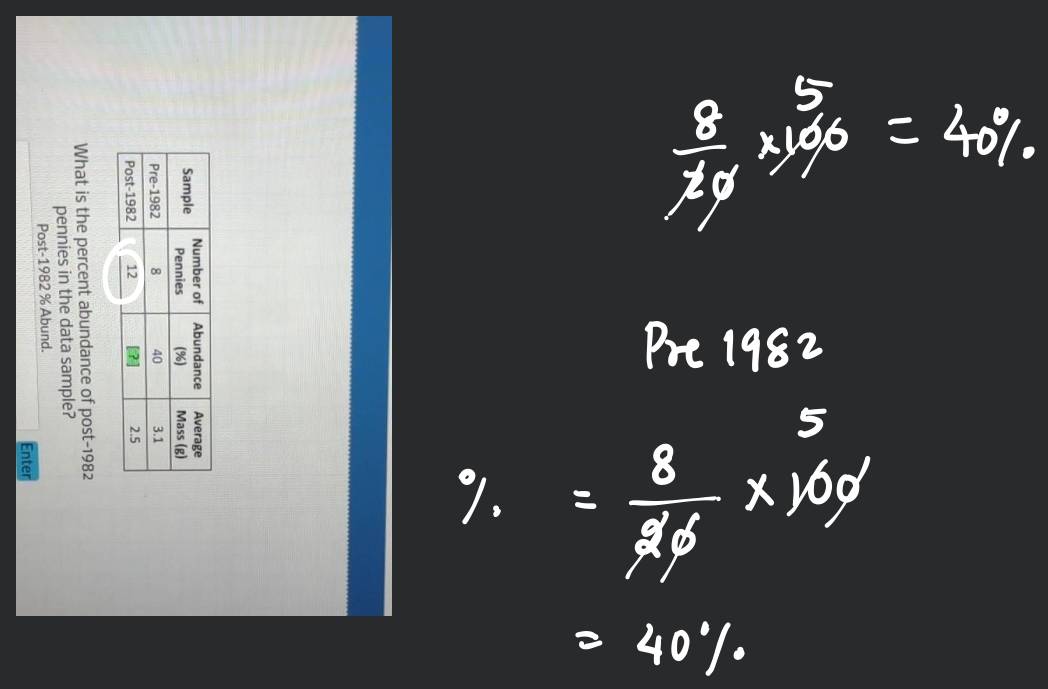 Sample Number of Pennies Abundance (%) Average Mass (g)
Pre-1982 8 40 3.1
Post-1982 12 [?] 2.5
What is the percent abundance of post-1982
pennies in the data sample?
Post-1982 % Abund.
Enter
8/20 x100 5 = 40%.
Pre 1982
%. = 8/20 x 100 5
= 40%.